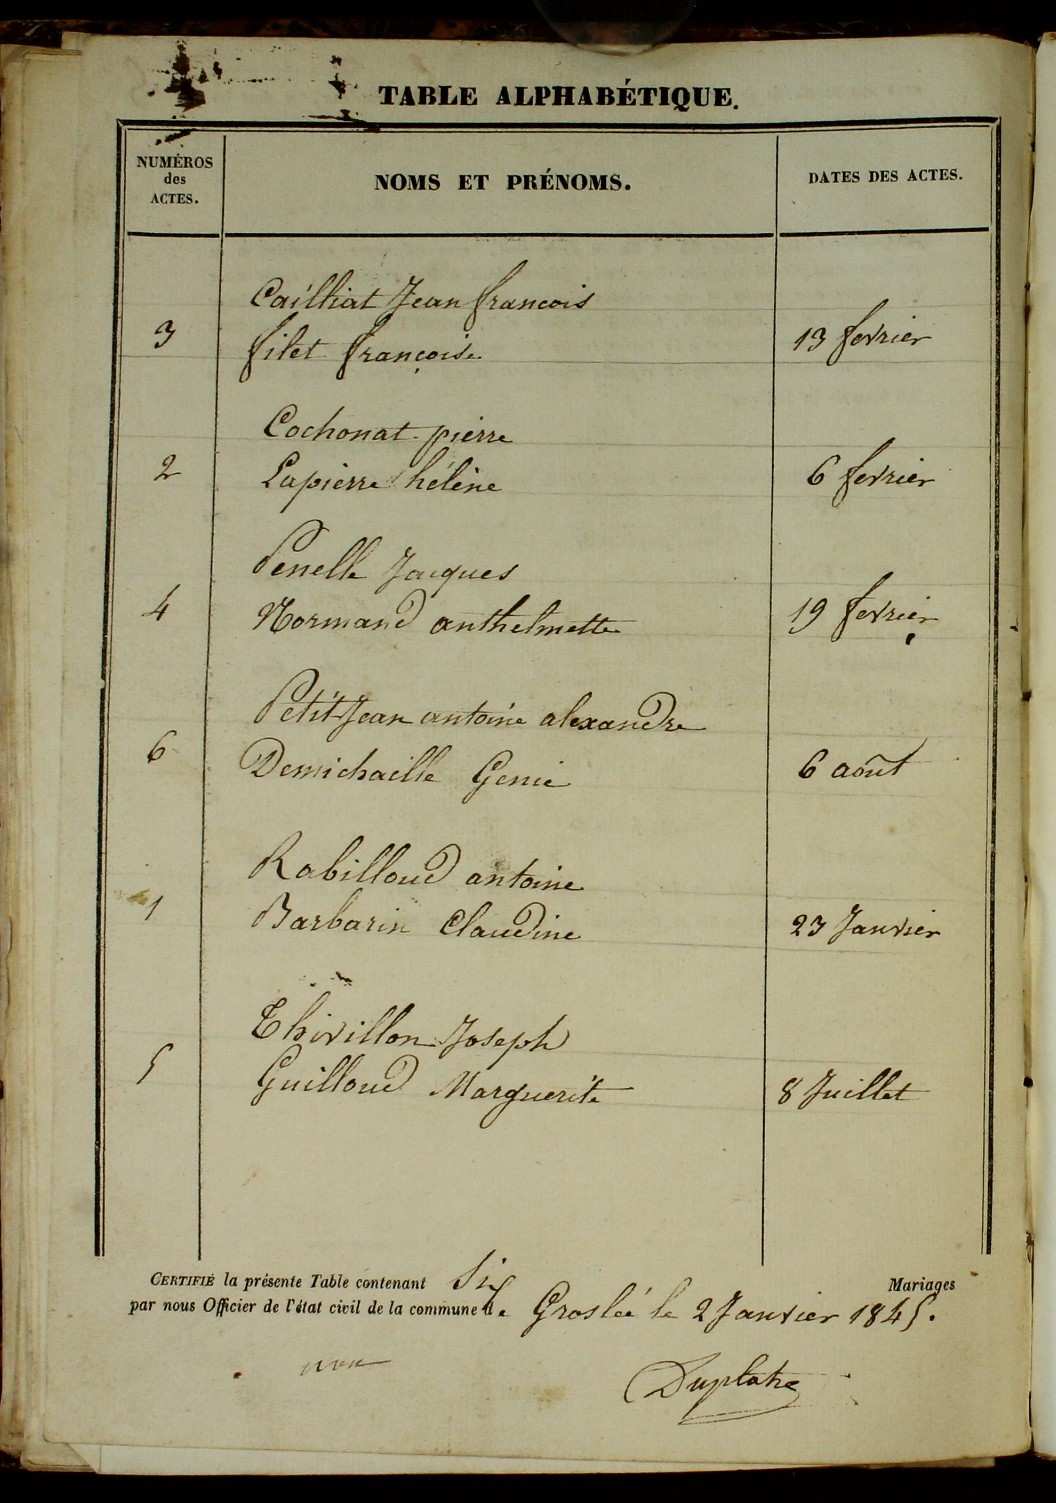 TABLE ALPHABÉTIQUE.
NUMÉROS
des
ACTES.
NOMS ET PRÉNOMS.
DATES DES ACTES.
Cailliat Jean françois
3 filet françoise 13 fevrier
Cochonat pierre
2 Lapierre hélène 6 fevrier
Penelle Jacques
4 Normand anthelmette 19 fevrier
Petit Jean antoine alexandre
6 Demichaille Genie 6 août
Rabilloud antoine
1 Barbarin Claudine 23 Janvier
Thivillon Joseph
5 Guilloud Marguerite 8 Juillet
CERTIFIÉ la présente Table contenant Six Mariages
par nous Officier de l'état civil de la commune de Groslée le 2 Janvier 1845.
Duplatre